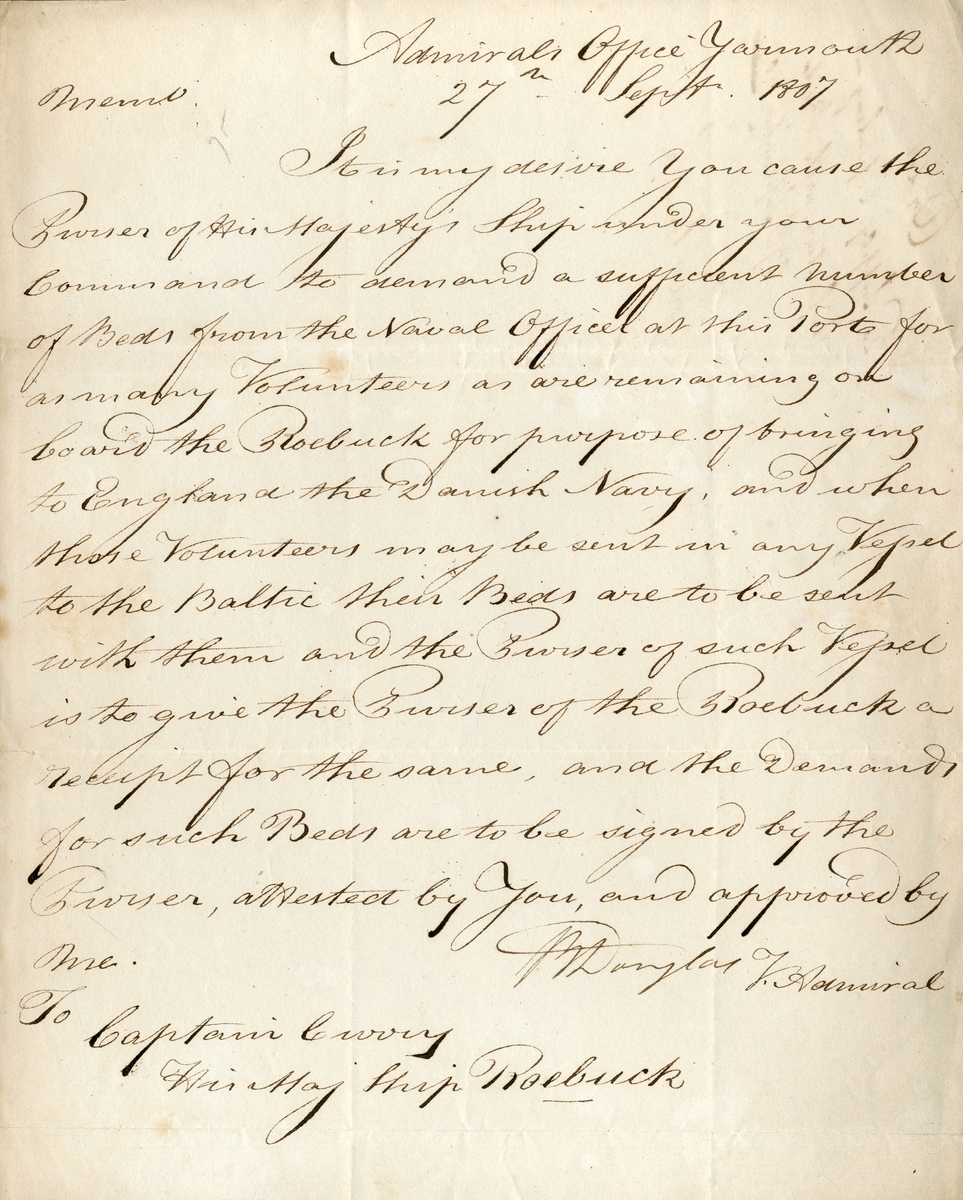 Admirals Office Yarmouth
Memo. 27th Septr. 1807
It is my desire You cause the
Purser of His Majesty's Ship under your
Command to demand a sufficient number
of Beds from the Naval Officer at this Port for
as many Volunteers as are remaining on
board the Roebuck for purpose of bringing
to England the Danish Navy, and when
those Volunteers may be sent in any Vessel
to the Baltic their Beds are to be sent
with them and the Purser of such Vessel
is to give the Purser of the Roebuck a
receipt for the same, and the Demands
for such Beds are to be signed by the
Purser, attested by You, and approved by
Me.
Douglas V. Admiral
To
Captain
His Maj Ship Roebuck